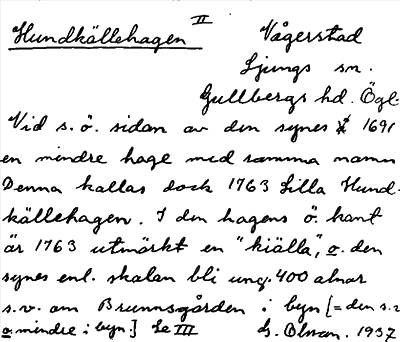 Hundkällehagen II Vågerstad
Ljungs sn.
Gullbergs hd. Ögl.
Vid s.ö. sidan av den synes 1691
en mindre hage med samma namn
Denna kallas dock 1763 Lilla Hund-
källehagen. I den hagens ö. kant
är 1763 utmärkt en "kiälla", o. den
synes enl. skalan bli ung. 400 alnar
s.v. om Brunnsgården i byn [= den s.z
o. mindre i byn] Se III G. Olson. 1937